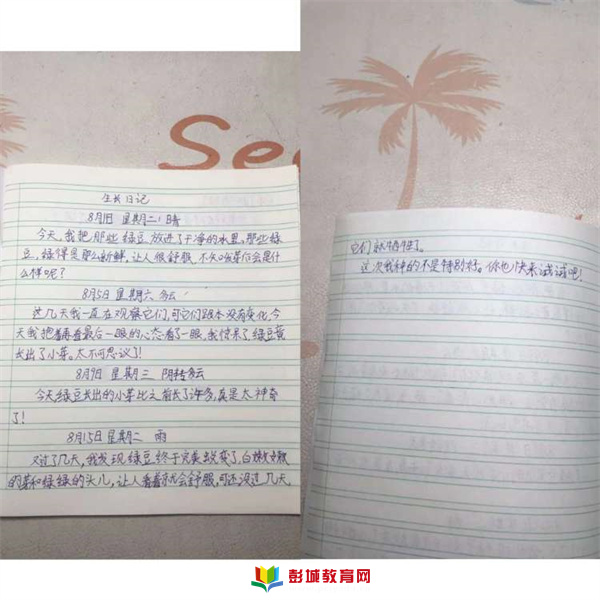 See
生长日记
8月1日 星期二 晴
今天,我把那些绿豆放进了干净的水里,那些绿
豆,绿得是那么新鲜,让人很舒服,不知发芽后会是什
么样呢?
8月5日 星期六 多云
这几天我一直在观察它们,可它们跟本没有变化,今
天我把着再看最后一眼的心态看了一眼,我惊呆了,绿豆竟
长出了小芽。太不可思议了!
8月9日 星期三 阴转多云
今天绿豆长出的小芽比之前长了许多,真是太神奇
了!
8月15日 星期二 雨
又过了几天,我发现绿豆终于完美蜕变了,白嫩嫩
的茎和绿绿的头儿,让人看着就会舒服,可还没过几天,
它们就牺牲了。
这次我种的不是特别好。你也快来试试吧!
彭城教育网